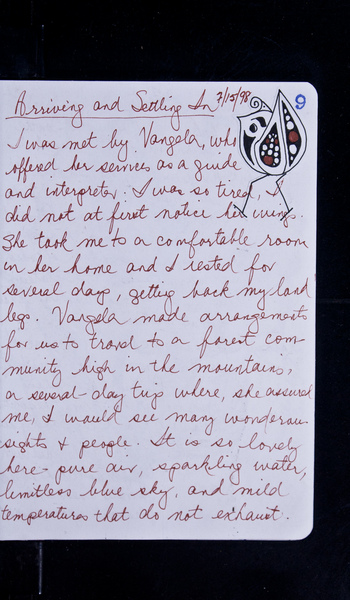 Arriving and Settling In 7/15/98 9
I was met by Vangela, who
offered her services as a guide
and interpreter. I was so tired, I
did not at first notice her wings.
She took me to a comfortable room
in her home and I rested for
several days, getting back my land
legs. Vangela made arrangements
for us to travel to a forest com-
munity high in the mountains,
a several-day trip where, she assured
me, I would see many wonderous
sights & people. It is so lovely
here - pure air, sparkling water,
limitless blue sky, and mild
temperatures that do not exhaust.